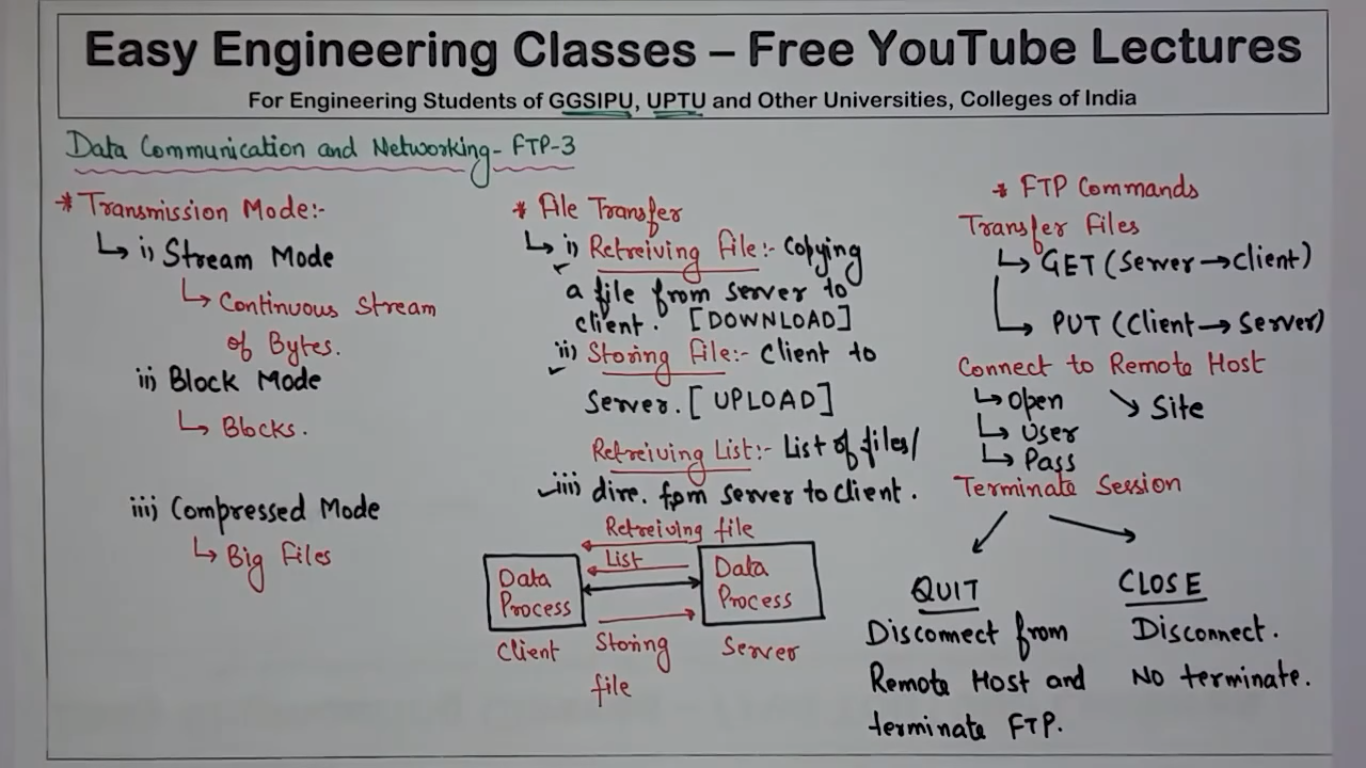 Easy Engineering Classes – Free YouTube Lectures
For Engineering Students of GGSIPU, UPTU and Other Universities, Colleges of India
Data Communication and Networking- FTP-3
* Transmission Mode:-
↳ i) Stream Mode
↳ Continuous Stream
of Bytes.
ii) Block Mode
↳ Blocks.
iii) Compressed Mode
↳ Big Files
* File Transfer
↳ i) Retreiving File:- Copying
a file from server to
client. [DOWNLOAD]
ii) Storing File:- Client to
Server. [UPLOAD]
Retreiving List:- List of files/
iii) dire. from server to client.
Retreiving file
List
Data
Process
Data
Process
Client
Storing
file
Server
* FTP Commands
Transfer Files
↳ GET (Server → client)
↳ PUT (Client → Server)
Connect to Remote Host
↳ Open
↘ Site
↳ User
↳ Pass
Terminate Session
QUIT
Disconnect from
Remote Host and
terminate FTP.
CLOSE
Disconnect.
No terminate.